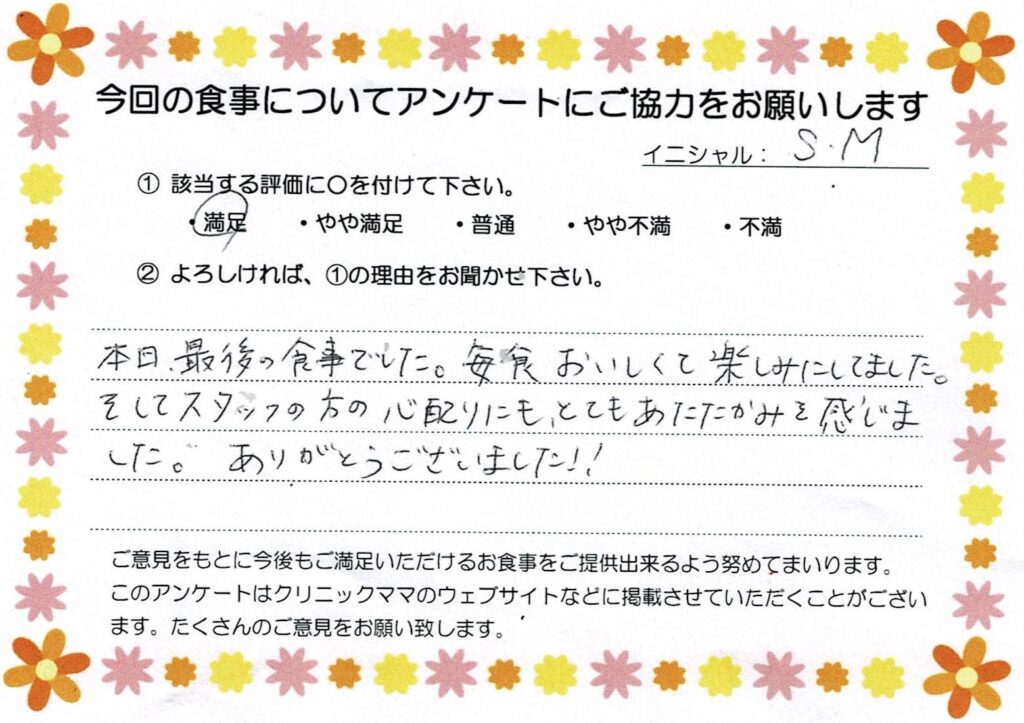 今回の食事についてアンケートにご協力をお願いします
イニシャル： S.M
① 該当する評価に〇を付けて下さい。
・満足 ・やや満足 ・普通 ・やや不満 ・不満
② よろしければ、①の理由をお聞かせ下さい。
本日、最後の食事でした。毎食 おいしくて 楽しみにしてました。
そしてスタッフの方の 心配りにも、とてもあたたかみを感じま
した。 ありがとうございました!!
ご意見をもとに今後もご満足いただけるお食事をご提供出来るよう努めてまいります。
このアンケートはクリニックママのウェブサイトなどに掲載させていただくことがござい
ます。たくさんのご意見をお願い致します。